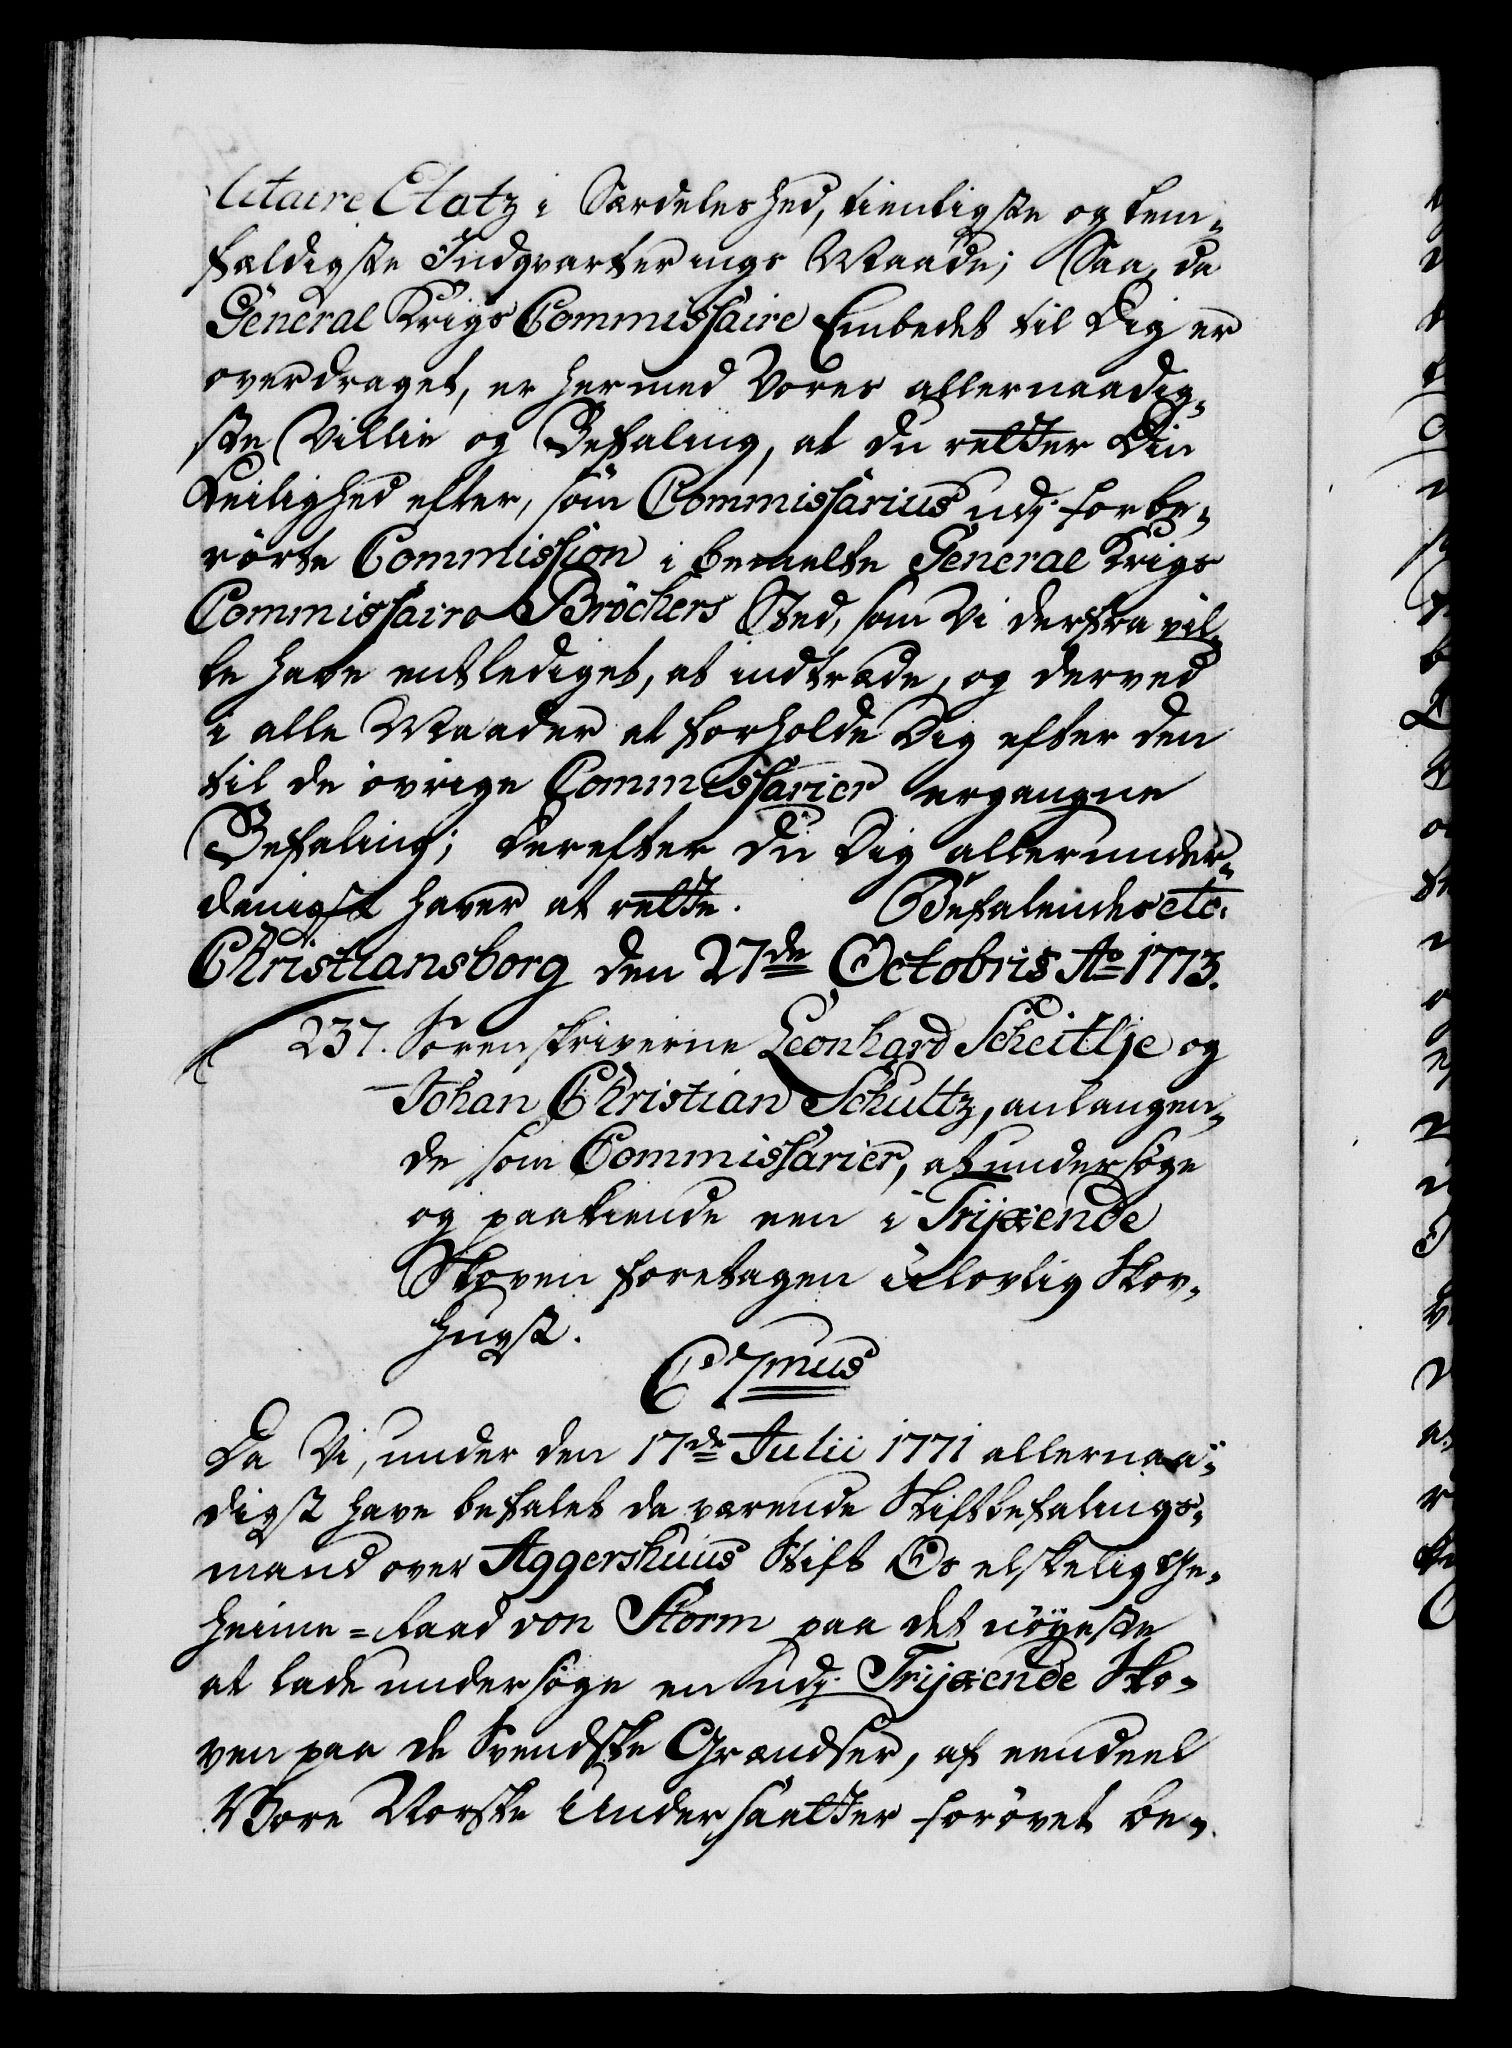 litaire Etatz i Særdeleshed, tienligste og lem-
fældigste Indqvarterings Maade; Saa, da
General Krigs Commissaire Embedet til Dig er
overdraget, er hermed Vores allernaadig-
ste Villie og Befaling, at du retter Din
Leilighed efter, som Commissarius udj forbe-
rörte Commission i bemelte General Krigs
Commissaire Bröchers Sted, som Vi derfra vil-
le have entlediget, at indtræde, og derved
i alle Maader at forholde Dig efter den
til de övrige Commissarier ergangne
Befaling; Derefter du Dig allerunder-
danigst haver at rette. Befalendes etc.
Christiansborg den 27de Octobris Ao 1773.
237. Sorenskriverne Leonhard Scheitlje og
Johan Christian Schultz, anlangen-
de som Commissarier, at undersöge
og paakiende een i Trijxende
Skoven foretagen ulovlig Skov-
hugst.
C 7mus
Da Vi, under den 17de Julii 1771 allernaa-
digst have befalet da værende Stiftbefalings-
mand over Aggershuus Stift Os elskelig Ge-
heime-Raad von Storm paa det nöyeste
at lade undersöge en udj Trijxende Sko-
ven paa de Svendske Grændser, af eendeel
Vore Norske Undersaatter forövet be-